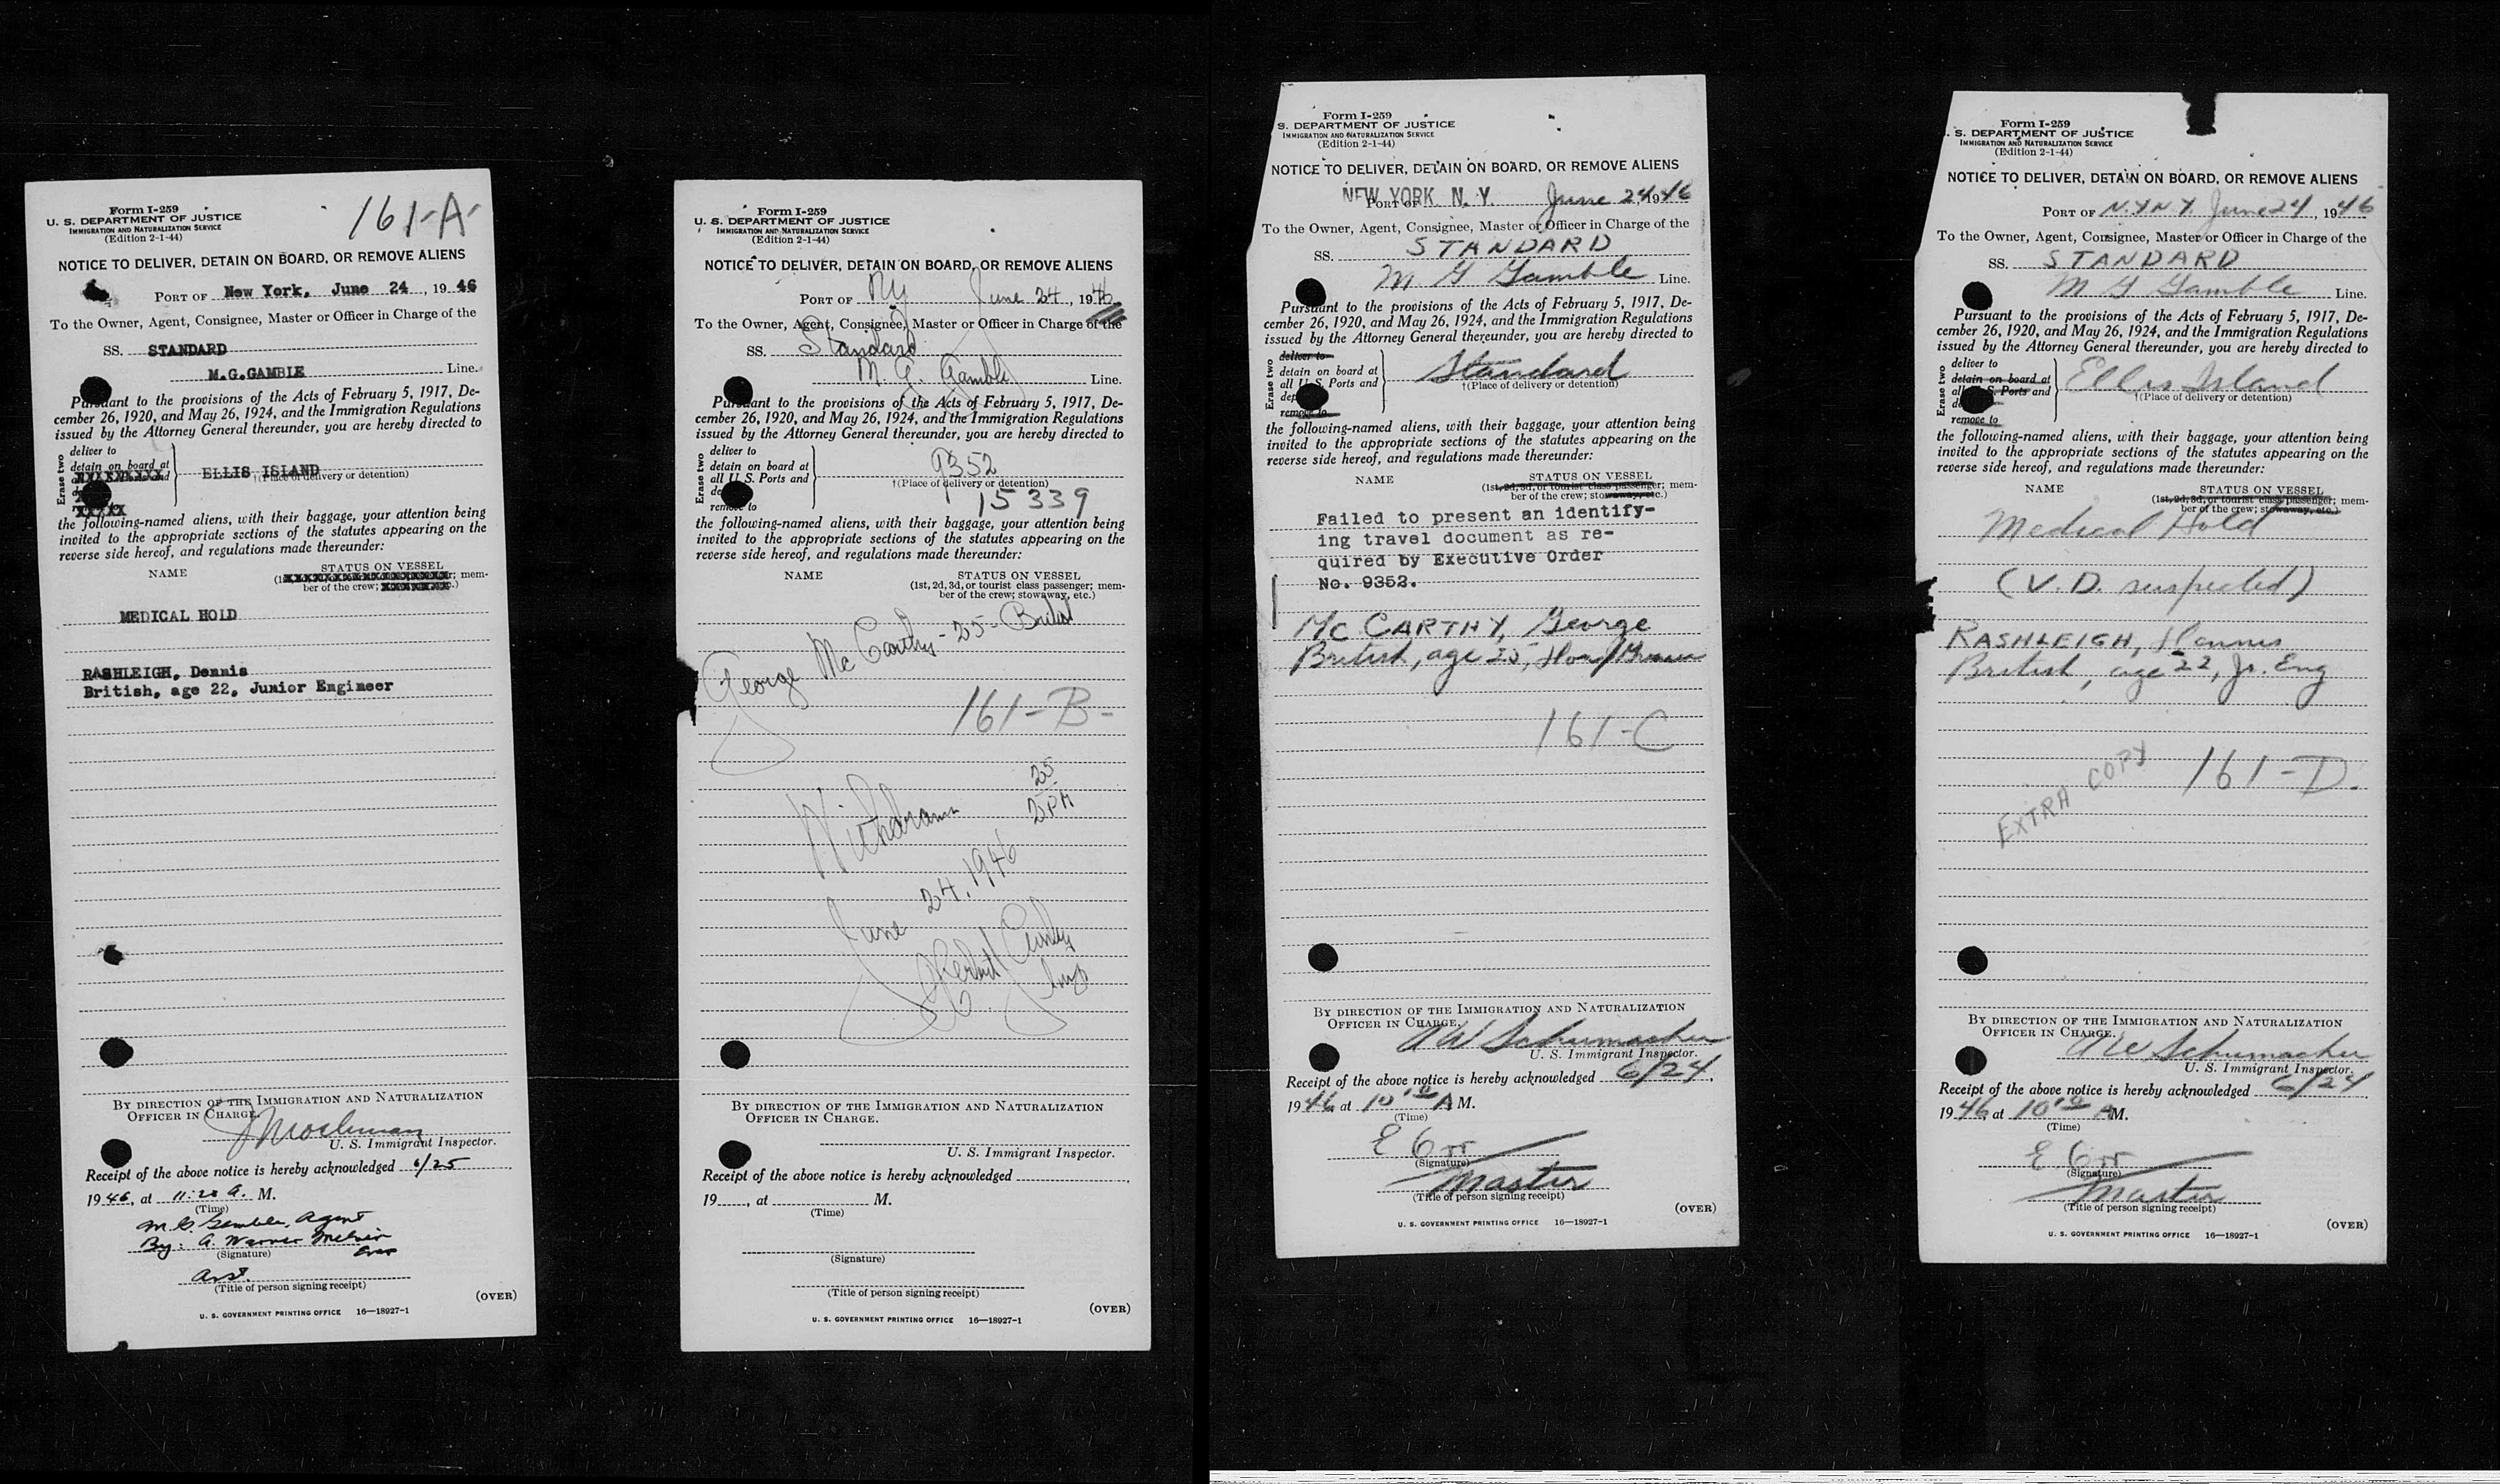 161-A-
Form I-259
U. S. DEPARTMENT OF JUSTICE
IMMIGRATION AND NATURALIZATION SERVICE
(Edition 2-1-44)
NOTICE TO DELIVER, DETAIN ON BOARD, OR REMOVE ALIENS
PORT OF New York, June 24, 1946
To the Owner, Agent, Consignee, Master or Officer in Charge of the
SS. STANDARD
M.G.GAMBLE Line.
Pursuant to the provisions of the Acts of February 5, 1917, De-
cember 26, 1920, and May 26, 1924, and the Immigration Regulations
issued by the Attorney General thereunder, you are hereby directed to
Erase two
deliver to
detain on board at
ELLIS ISLAND
†(Place of delivery or detention)
the following-named aliens, with their baggage, your attention being
invited to the appropriate sections of the statutes appearing on the
reverse side hereof, and regulations made thereunder:
NAME STATUS ON VESSEL
mem-
ber of the crew;
MEDICAL HOLD
RASHLEIGH, Dennis
British, age 22, Junior Engineer
BY DIRECTION OF THE IMMIGRATION AND NATURALIZATION
OFFICER IN CHARGE.
U. S. Immigrant Inspector.
Receipt of the above notice is hereby acknowledged 6/25
1946, at 11:20 A. M.
(Time)
M. G. Gamble, Agent
By: A. Warner
(Signature)
(Title of person signing receipt)
(OVER)
U. S. GOVERNMENT PRINTING OFFICE 16—18927-1
Form I-259
U. S. DEPARTMENT OF JUSTICE
IMMIGRATION AND NATURALIZATION SERVICE
(Edition 2-1-44)
NOTICE TO DELIVER, DETAIN ON BOARD, OR REMOVE ALIENS
PORT OF NY June 24, 1946
To the Owner, Agent, Consignee, Master or Officer in Charge of the
SS. Standard
M. G. Gamble Line.
Pursuant to the provisions of the Acts of February 5, 1917, De-
cember 26, 1920, and May 26, 1924, and the Immigration Regulations
issued by the Attorney General thereunder, you are hereby directed to
Erase two
deliver to
detain on board at
all U. S. Ports and
remove to
9352
†(Place of delivery or detention)
15339
the following-named aliens, with their baggage, your attention being
invited to the appropriate sections of the statutes appearing on the
reverse side hereof, and regulations made thereunder:
NAME STATUS ON VESSEL
(1st, 2d, 3d, or tourist class passenger; mem-
ber of the crew; stowaway, etc.)
George McCarthy - 25 - British
161-B-
25
2PM
Withdrawn
June 24, 1946
BY DIRECTION OF THE IMMIGRATION AND NATURALIZATION
OFFICER IN CHARGE.
U. S. Immigrant Inspector.
Receipt of the above notice is hereby acknowledged
19, at M.
(Time)
(Signature)
(Title of person signing receipt)
(OVER)
U. S. GOVERNMENT PRINTING OFFICE 16—18927-1
Form I-259
S. DEPARTMENT OF JUSTICE
IMMIGRATION AND NATURALIZATION SERVICE
(Edition 2-1-44)
NOTICE TO DELIVER, DETAIN ON BOARD, OR REMOVE ALIENS
PORT OF NEW YORK N. Y. June 24, 1946
To the Owner, Agent, Consignee, Master or Officer in Charge of the
SS. STANDARD
M G Gamble Line.
Pursuant to the provisions of the Acts of February 5, 1917, De-
cember 26, 1920, and May 26, 1924, and the Immigration Regulations
issued by the Attorney General thereunder, you are hereby directed to
Erase two
deliver to
detain on board at
all U. S. Ports and
remove to
Standard
†(Place of delivery or detention)
the following-named aliens, with their baggage, your attention being
invited to the appropriate sections of the statutes appearing on the
reverse side hereof, and regulations made thereunder:
NAME STATUS ON VESSEL
(1st, 2d, 3d, or tourist class passenger; mem-
ber of the crew; stowaway, etc.)
Failed to present an identify-
ing travel document as re-
quired by Executive Order
No. 9352.
MCCARTHY, George
British, age 25,
161-C
BY DIRECTION OF THE IMMIGRATION AND NATURALIZATION
OFFICER IN CHARGE.
A W Schumacher
U. S. Immigrant Inspector.
Receipt of the above notice is hereby acknowledged 6/24,
1946 at 10 A M.
(Time)
E Orr
(Signature)
Master
(Title of person signing receipt)
(OVER)
U. S. GOVERNMENT PRINTING OFFICE 16—18927-1
Form I-259
. S. DEPARTMENT OF JUSTICE
IMMIGRATION AND NATURALIZATION SERVICE
(Edition 2-1-44)
NOTICE TO DELIVER, DETAIN ON BOARD, OR REMOVE ALIENS
PORT OF N.Y.N.Y. June 24, 1946
To the Owner, Agent, Consignee, Master or Officer in Charge of the
SS. STANDARD
M G Gamble Line.
Pursuant to the provisions of the Acts of February 5, 1917, De-
cember 26, 1920, and May 26, 1924, and the Immigration Regulations
issued by the Attorney General thereunder, you are hereby directed to
Erase two
deliver to
detain on board at
all U. S. Ports and
remove to
Ellis Island
†(Place of delivery or detention)
the following-named aliens, with their baggage, your attention being
invited to the appropriate sections of the statutes appearing on the
reverse side hereof, and regulations made thereunder:
NAME STATUS ON VESSEL
(1st, 2d, 3d, or tourist class passenger; mem-
ber of the crew; stowaway, etc.)
Medical Hold
(V.D. suspected)
RASHLEIGH, Dennis
British, age 22, Jr. Eng
EXTRA COPY
161-D.
BY DIRECTION OF THE IMMIGRATION AND NATURALIZATION
OFFICER IN CHARGE.
A W Schumacher
U. S. Immigrant Inspector.
Receipt of the above notice is hereby acknowledged 6/24,
1946, at 10 A M.
(Time)
E. Orr
(Signature)
Master
(Title of person signing receipt)
(OVER)
U. S. GOVERNMENT PRINTING OFFICE 16—18927-1